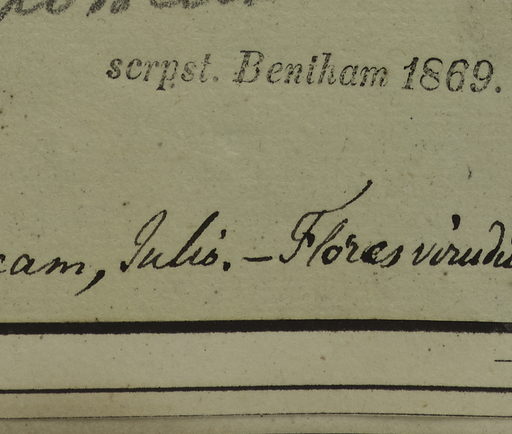 scrpst. Bentham 1869.
cam, Julio. – Flores viridi